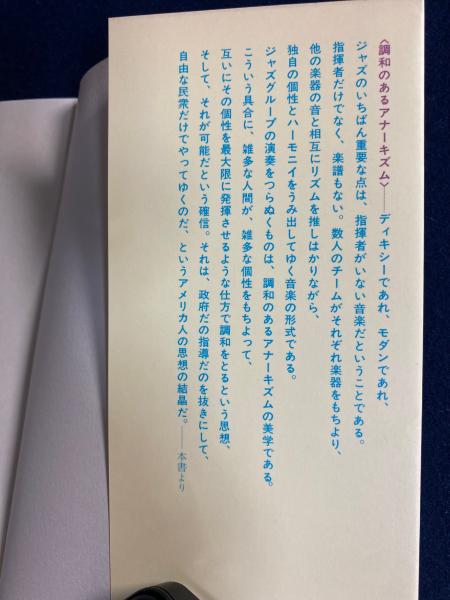 〈調和のあるアナーキズム〉——ディキシーであれ、モダンであれ、
ジャズのいちばん重要な点は、指揮者がいない音楽だということである。
指揮者だけでなく、楽譜もない。数人のチームがそれぞれ楽器をもちより、
他の楽器の音と相互にリズムを推しはかりながら、
独自の個性とハーモニイをうみ出してゆく音楽の形式である。
ジャズグループの演奏をつらぬくものは、調和のあるアナーキズムの美学である。
こういう具合に、雑多な人間が、雑多な個性をもちよって、
互いにその個性を最大限に発揮させるような仕方で調和をとるという思想、
そして、それが可能だという確信。それは、政府だの指導だのを抜きにして、
自由な民衆だけでやってゆくのだ、というアメリカ人の思想の結晶だ。——本書より